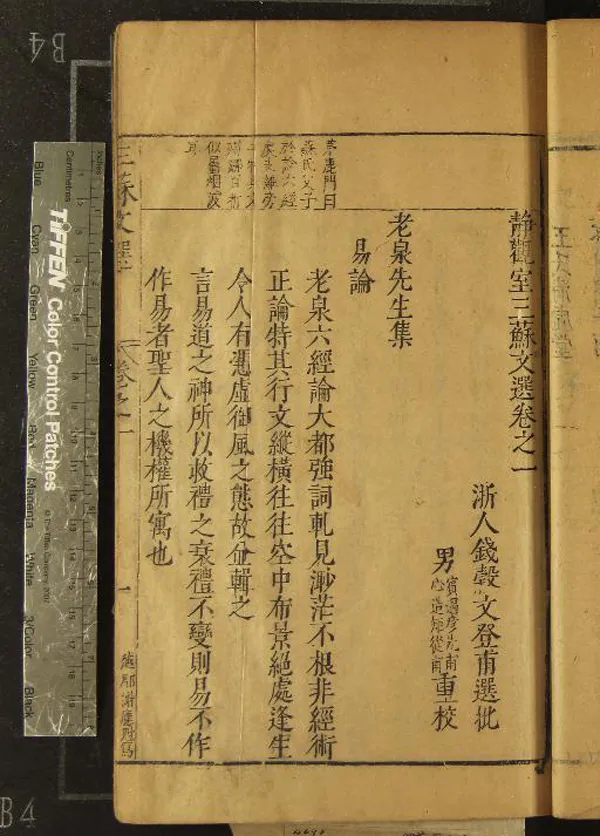 靜觀室三蘇文選卷之一
浙人錢穀文登甫選批
男
重校
老泉先生集
易論
茅鹿門曰
蘇氏父子
於論六經
老泉六經論大都強詞軋見渺茫不根非經術
正論特其行文縱橫往往空中布景絕處逢生
令人有憑虛御風之態故並輯之
言易道之神所以收禮之衰禮不變則易不作
作易者聖人之機權所寓也
三蘇文選
卷之一
一
B4
B4
Inches
Centimetres
TIFFEN Color Control Patches
Blue
Cyan
Green
Yellow
Red
Magenta
White
3/Color
Black